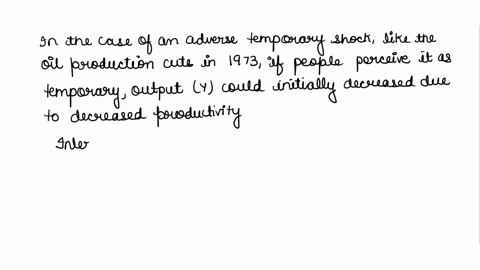 In the case of an adverse temporary shock, like the
oil production cuts in 1973, if people perceive it as
temporary, output (Y) could initially decreased due
to decreased productivity
Inter